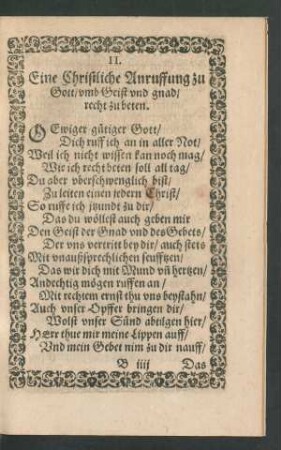 II.
Eine Christliche Anruffung zu
Gott/ vmb Geist vnd gnad/
recht zu beten.
O Ewiger gütiger Gott/
Dich ruff ich an in aller Not/
Weil ich nicht wissen kan noch mag/
Wie ich recht beten soll all tag/
Du aber vberschwenglich bist/
Zu leiten einen jedern Christ/
So ruffe ich jtzundt zu dir/
Das du wöllest auch geben mir
Den Geist der Gnad vnd des Gebets/
Der vns vertritt bey dir/ auch stets
Mit vnaußsprechlichen seufftzen/
Das wir dich mit Mund vň hertzen/
Andechtig mögen ruffen an/
Mit rechtem ernst thu vns beystahn/
Auch vnser Opffer bringen dir/
Wolst vnser Sünd abtilgen hier/
HErr thue mir meine Lippen auff/
Vnd mein Gebet nim zu dir nauff/
B iiij Das